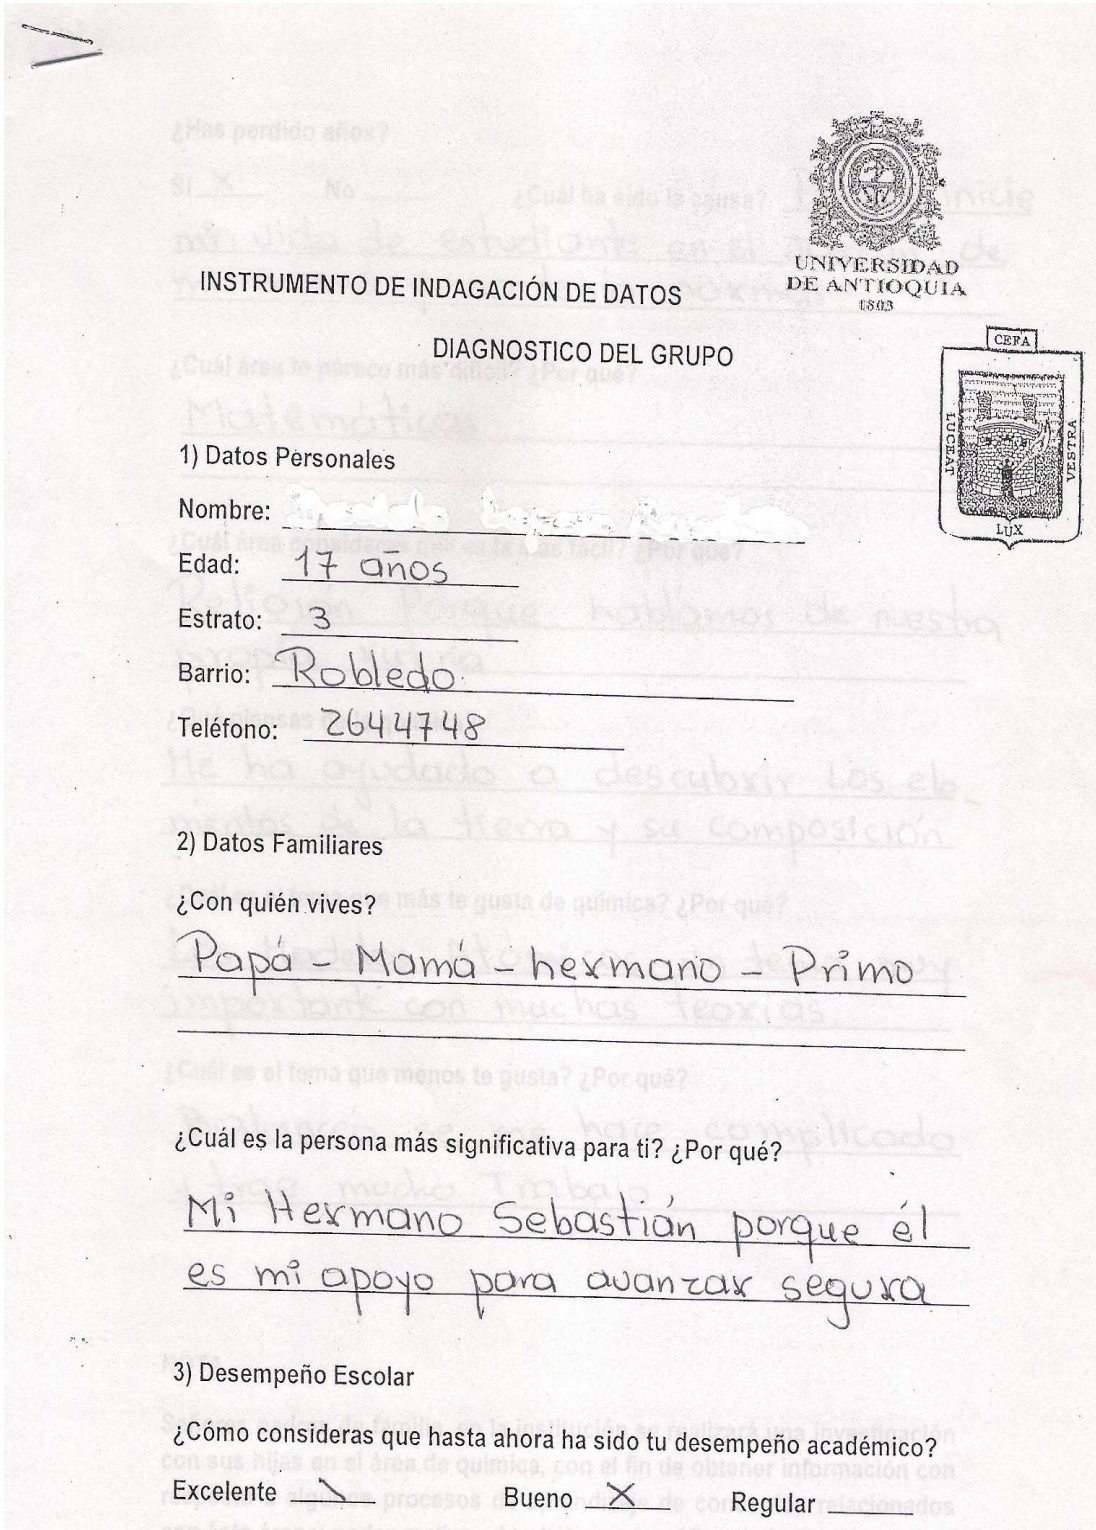 UNIVERSIDAD
DE ANTIOQUIA
1803
INSTRUMENTO DE INDAGACIÓN DE DATOS
DIAGNOSTICO DEL GRUPO
CEFA
LUCEAT
VESTRA
LUX
1) Datos Personales
Nombre:
Edad: 17 años
Estrato: 3
Barrio: Robledo
Teléfono: 2644748
2) Datos Familiares
¿Con quién vives?
Papá - Mamá - hermano - Primo
¿Cuál es la persona más significativa para ti? ¿Por qué?
Mi Hermano Sebastián porque él
es mi apoyo para avanzar segura
3) Desempeño Escolar
¿Cómo consideras que hasta ahora ha sido tu desempeño académico?
Excelente \ Bueno X Regular